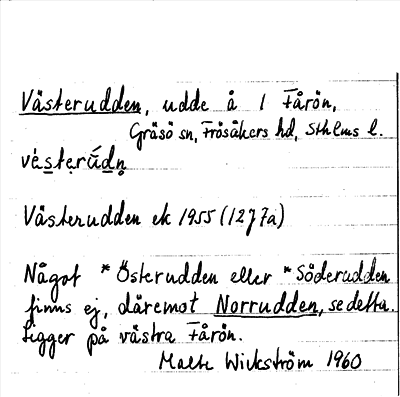 Västerudden, udde å / Fårön,
Gräsö sn, Frösåkers hd, Sthlms l.
vèsterúdn̥
Västerudden ek 1955 (12J7a)
Något *Österudden eller *Söderudden
finns ej, däremot Norrudden, se detta.
Ligger på västra Fårön.
Malte Wickström 1960